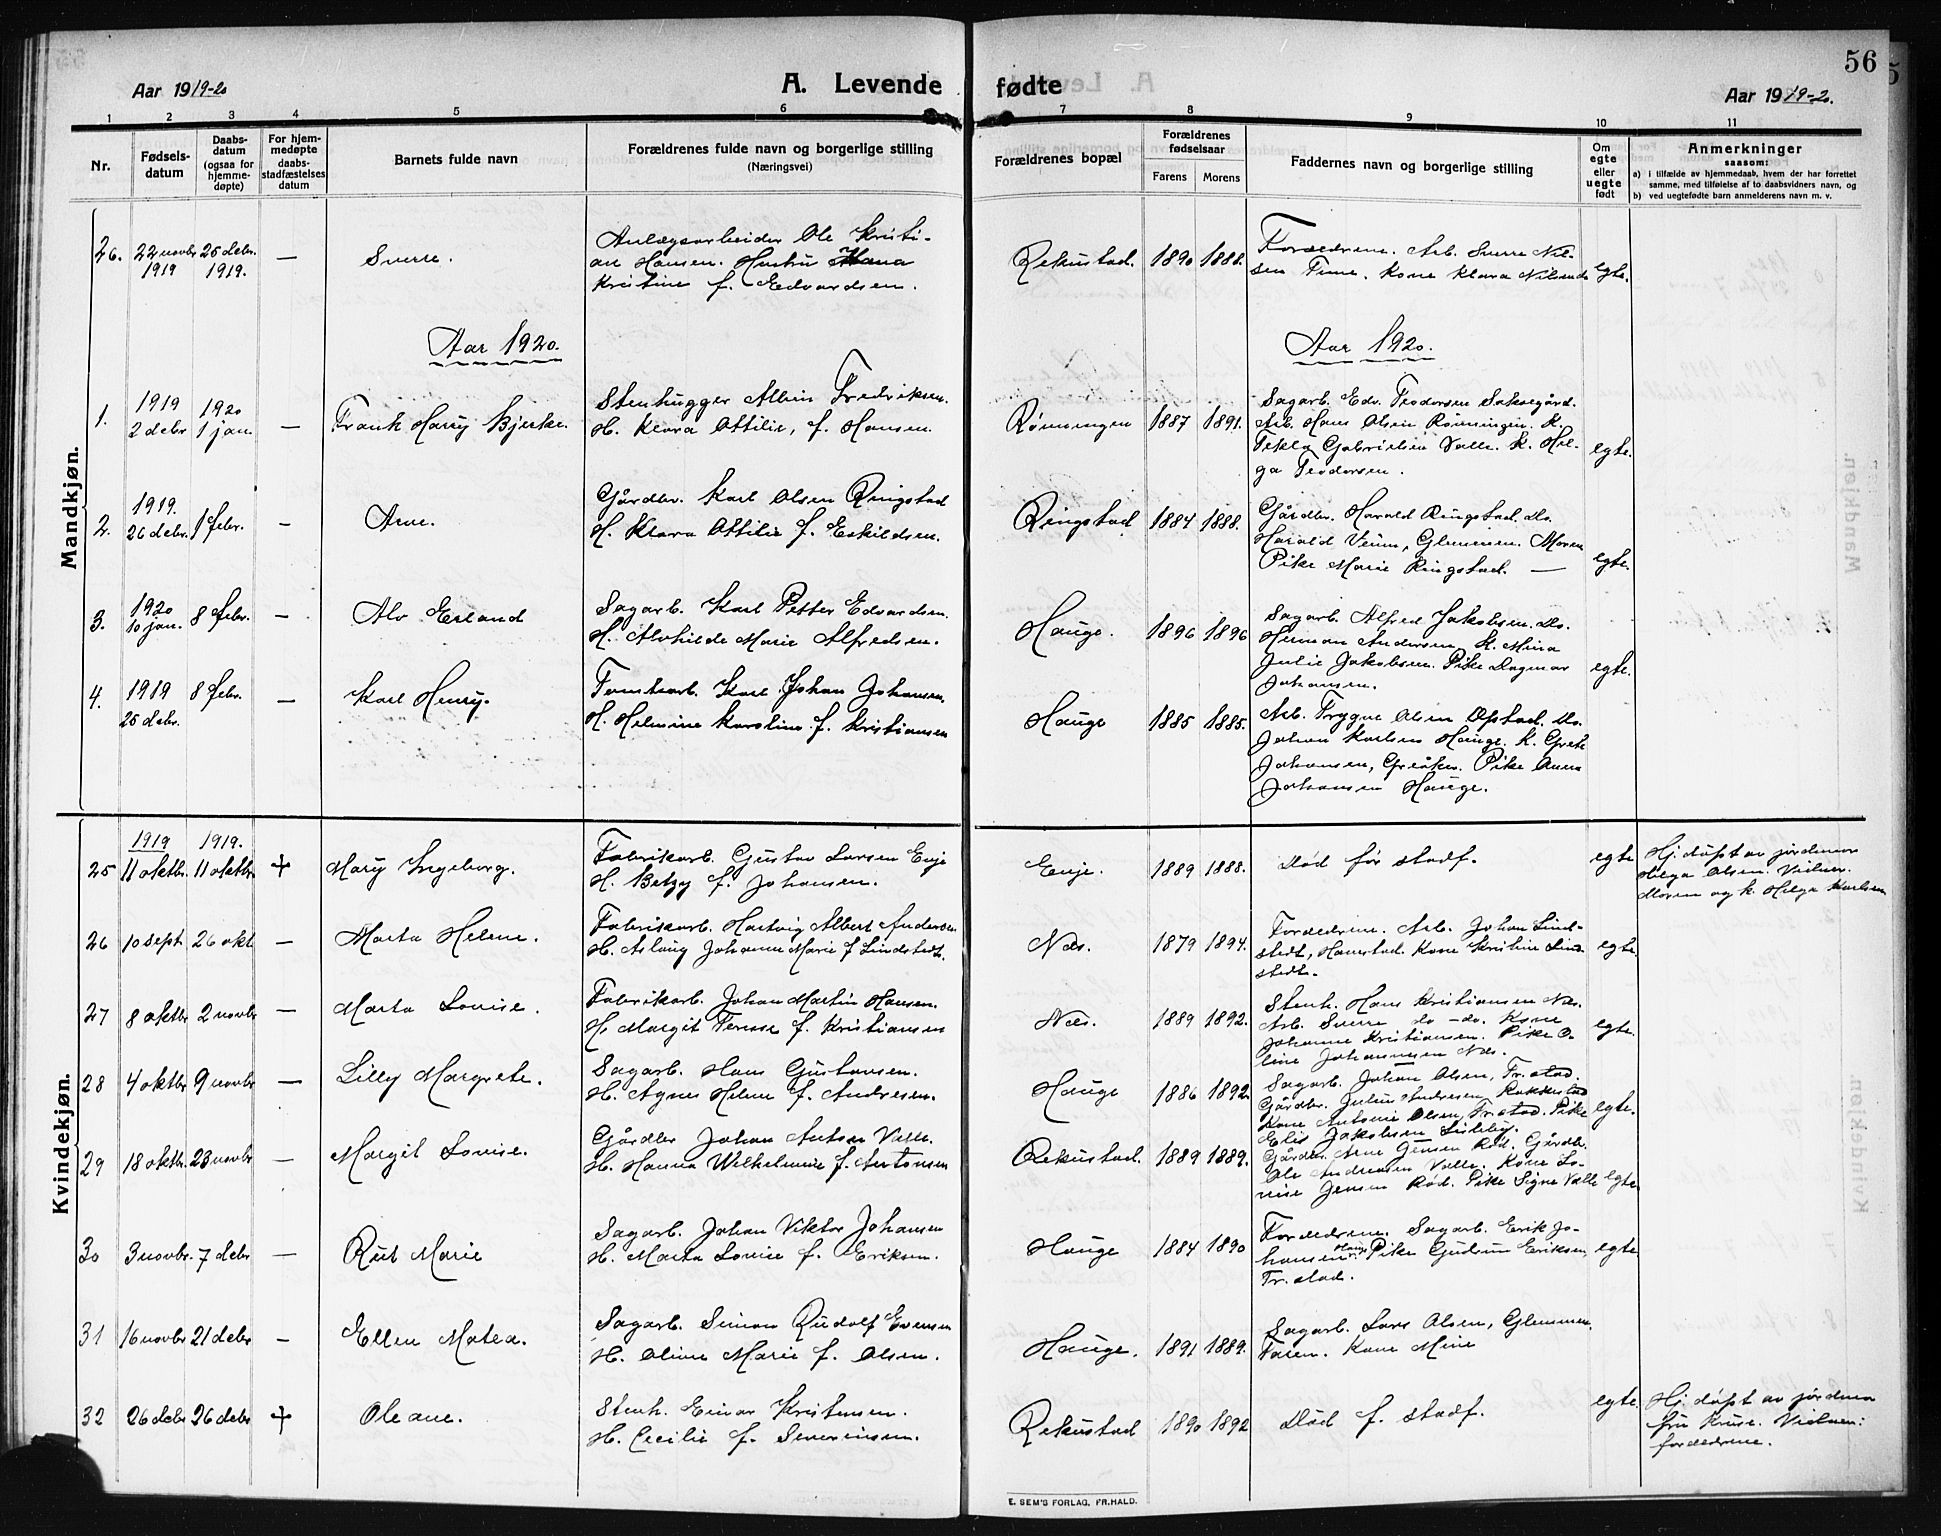 56
Aar 1919-20
A. Levende fødte
Aar 1919-20.
1 2 3 4 5 6 7 8 9 10 11
Nr.
Fødsels-
datum
Daabs-
datum
(ogsaa for
hjemme-
døpte)
For hjem-
medøpte
daabs-
stadfæstelses
datum
Barnets fulde navn
Forældrenes fulde navn og borgerlige stilling
(Næringsvei)
Forældrenes bopæl
Forældrenes
fødselsaar
Farens Morens
Faddernes navn og borgerlige stilling
Om
egte
eller
uegte
født
Anmerkninger
saasom:
a) i tilfælde av hjemmedaab, hvem der har forrettet
samme, med tilføielse af to daabsvidners navn, og
b) ved uegtefødte barn anmelderens navn m. v.
Mandkjøn.
26. 22 novbr 1919 25 debr. 1919. — Sverre.
Anlægsarbeider Ole Kristi-
an Hansen. Hustru
Kristine f. Edvardsen.
Rekustad. 1890 1888.
Forældrene. Arb. Sverre Nil-
sen Tune. Kone Klara Nilsen do
egte.
Aar 1920.
Aar 1920.
1. 1919 2 debr 1920 1 jan. — Frank Harry Bjerke.
Stenhugger Albin Fredriksen.
H. Klara Ottilie, f. Hansen.
Rønningen 1887 1891.
Sagarb. Edv. Teodorsen
Arb. Hans Olsen Rønningen. K.
Tekla Gabrielsen Valle. K. Hel-
ga Teodorsen.
egte.
2. 1919. 26 debr. 1 febr. — Arne.
Gårdbr. Karl Olsen Ringstad
H. Klara Ottilie f. Eskildsen.
Ringstad 1884 1888.
Gårdbr. Harald Ringstad. Do.
Harald Veum, Glemmen. Moren
Pike Marie Ringstad. —
egte.
3. 1920 10 jan. 8 febr. — Alv Erland
Sagarb. Karl Petter Edvardsen.
H. Alvhilde Marie Alfredsen.
Hauge. 1896 1896
Sagarb. Alfred Jakobsen. Do.
Herman Andersen K. Mina
Julie Jakobsen. Pike Dagmar
Johansen.
egte.
4. 1919 25 debr. 8 febr. — Karl Henry.
Tomtearb. Karl Johan Johansen.
H. Helmine Karoline f. Kristiansen
Hauge 1885 1885.
Arb. Trygve Olsen Opstad. Do.
Johan Karlsen Hauge. K. Grete
Johansen, Greåker. Pike Anna
Johansen Hauge.
Kvindekjøn.
1919 1919.
25 11 oktbr. 11 oktbr + Mary Ingeborg.
Fabrikarb. Gustav Larsen Enje
H. Betzy f. Johansen.
Enje. 1889 1888.
Død før stadf.
egte
Hj. døpt av jordmor
Helga Olsen. Vidner.
Moren og k. Helga Karlsen
26 10 sept. 26 okt — Marta Helene.
Fabrikarb. Hartvig Albert Andersen
H. Aslaug Johanne Marie f Lindstedt.
Næs. 1879 1894.
Forældrene. Arb. Johan Lind-
stedt, Hanestad. Kone Kristine Lind-
stedt.
egte.
27 8 oktbr 2 novbr — Marta Lovise.
Fabrikarb. Johan Martin Hansen.
H. Margit Terese f. Kristiansen
Næs. 1889 1892.
Stenh. Hans Kristiansen Næs.
Arb. Sverre do — do. Kone
Johanne Kristiansen. Pike O-
line Johannesen Næs.
egte.
28 4 oktbr 9 novbr — Lilly Margrete.
Sagarb. Hans Gustavsen.
H. Agnes Helene f. Andresen.
Hauge 1886 1892.
Sagarb. Johan Olsen, Fr.stad.
Gårdbr. Julius Andresen, Rakkestad
Kone Antonie Olsen, Fr.stad. Pike
Elis Jakobsen
egte.
29 18 oktbr. 23 novbr — Margit Lovise.
Gårdbr Johan Anton Valle.
H. Hanna Wilhelmine f. Antonsen
Rekustad. 1889 1889.
Gårdbr. Arne Jensen Rød. Gårdbr.
Ole Andreasen Valle. Kone Lo-
vise Jensen Rød. Pike Signe Valle
egte.
30 3 novbr. 7 debr — Rut Marie
Sagarb. Johan Viktor Johansen
H. Marta Lovise f. Eriksen.
Hauge 1884 1890
Forældrene. Sagarb. Erik Jo-
hansen Hauge. Pike Gudrun Eriksen,
Fr.stad.
egte
31 16 novbr 21 debr — Ellen Matea.
Sagarb. Simon Rudolf Evensen
H. Oline Marie f. Olsen.
Hauge. 1891 1889.
Sagarb. Lars Olsen, Glemmen.
Faren. Kone Mine
32 26 debr 26 debr + Oleane.
Stenh. Einar Kristensen.
H. Cecilie f. Severinsen.
Rekustad 1890 1892
Død f. stadf.
egte.
Hj. døpt av jordmor
fru Kruse. Vidner:
forældrene.
E. SEM'S FORLAG, FR.HALD.